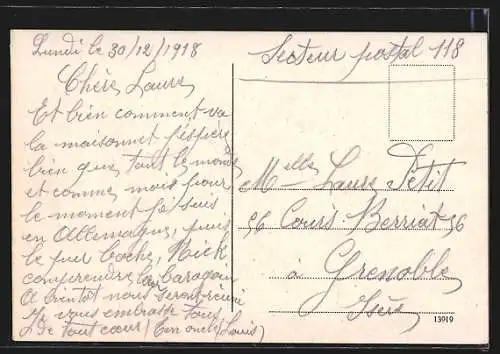 Lundi le 30/12/1918
Chère Laure
Et bien comment va
la maisonnet j'espère
bien que tout le monde
et comme moi pour
le moment je suis
en Allemagne, puis
le pur boche, Nick
comprendre la baragoin
A bientôt nous serons réuni
Je vous embrasse tous
de tout cœur (ton oncle Louis)
Secteur postal 118
Melle Laure Petit
56 Cours Berriat 56
à Grenoble
Isère
13019